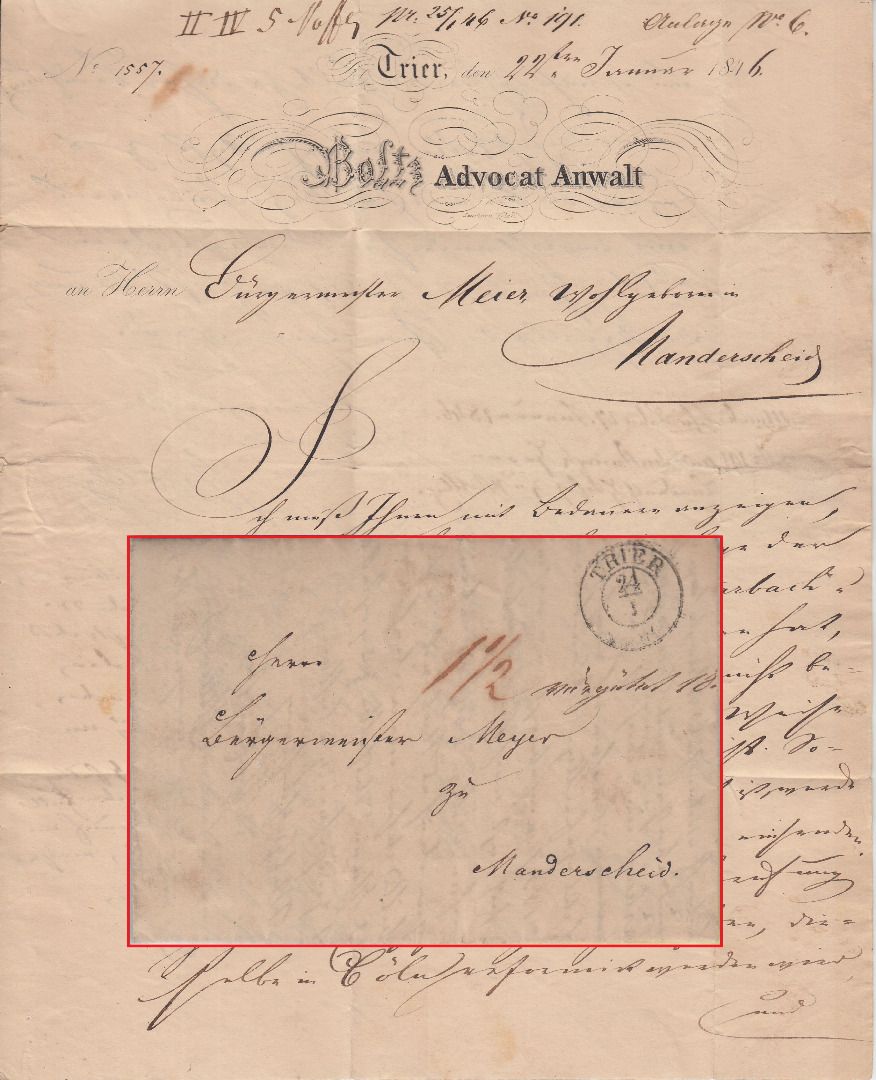 II IV 5
Nr. 25/1 46 No. 191.
Anlage No. 6.
No. 1557.
Trier, den 22ten Januar 1846.
Boltz Advocat Anwalt
an Herrn Bürgermeister Meier, Wohlgeboren in
Manderscheid
Ich muß Ihnen mit Bedauern anzeigen,
der
hat,
nicht be-
Weise
So-
ist, werde
die-
selbe in Cöln reformirt werden wird,
und
TRIER
21
1
Herrn
1 1/2
Bürgermeister Meyer
zu
Manderscheid.